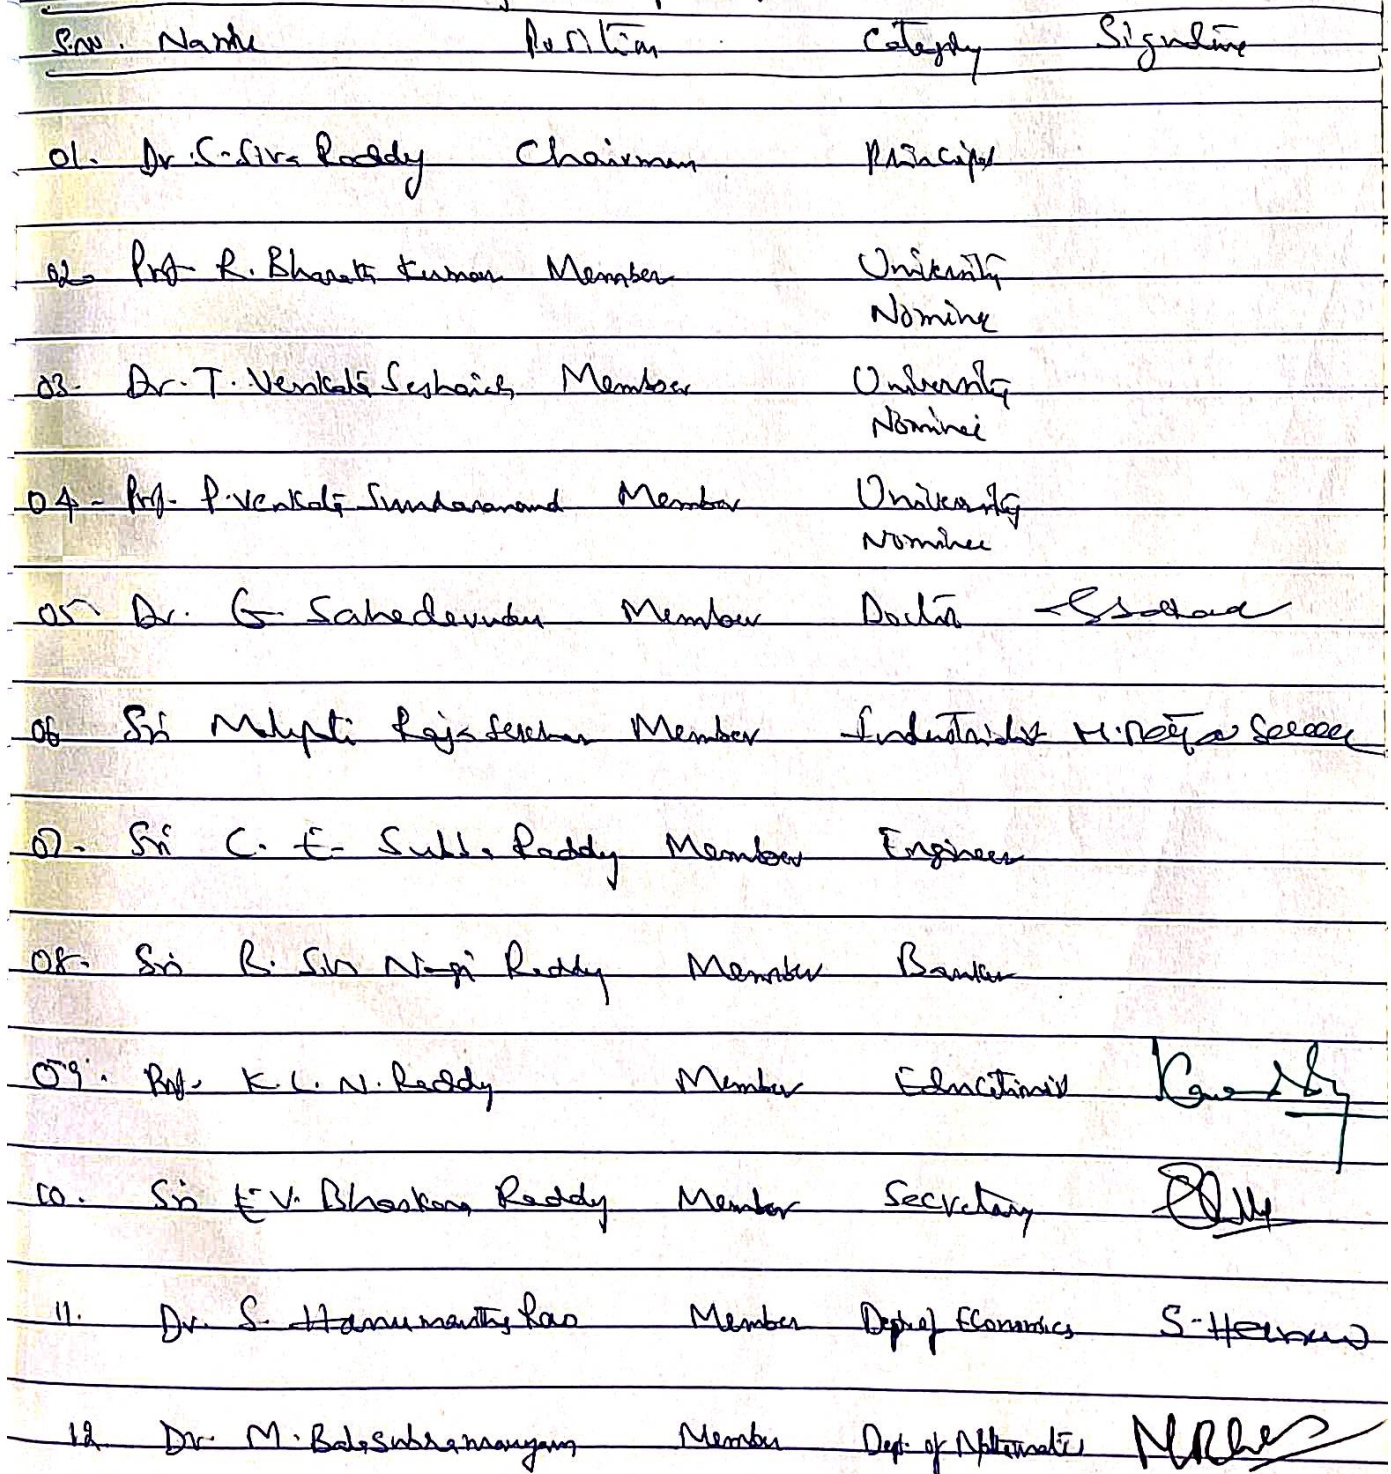 S.no. Name Position Category Signature
01. Dr. S. Siva Reddy Chairman Principal
02. Prof R. Bharath Kumar Member University
Nominee
03. Dr. T. Venkata Seshaiah Member University
Nominee
04. Prof. P. Venkata Sundaranand Member University
Nominee
05. Dr. G. Sahadevudu Member Doctor
06. Sri Raja Sekhar Member Industrialist M. Raja Sekhar
07. Sri C. E. Subba Reddy Member Engineer
08. Sri B. Siva Nagi Reddy Member Banker
09. Prof. K. L. N. Reddy Member Educationist
10. Sri E. V. Bhaskara Reddy Member Secretary
11. Dr. S. Hanumantha Rao Member Dept. of Economics
12. Dr. M. Balasubramanyam Member Dept. of Mathematics